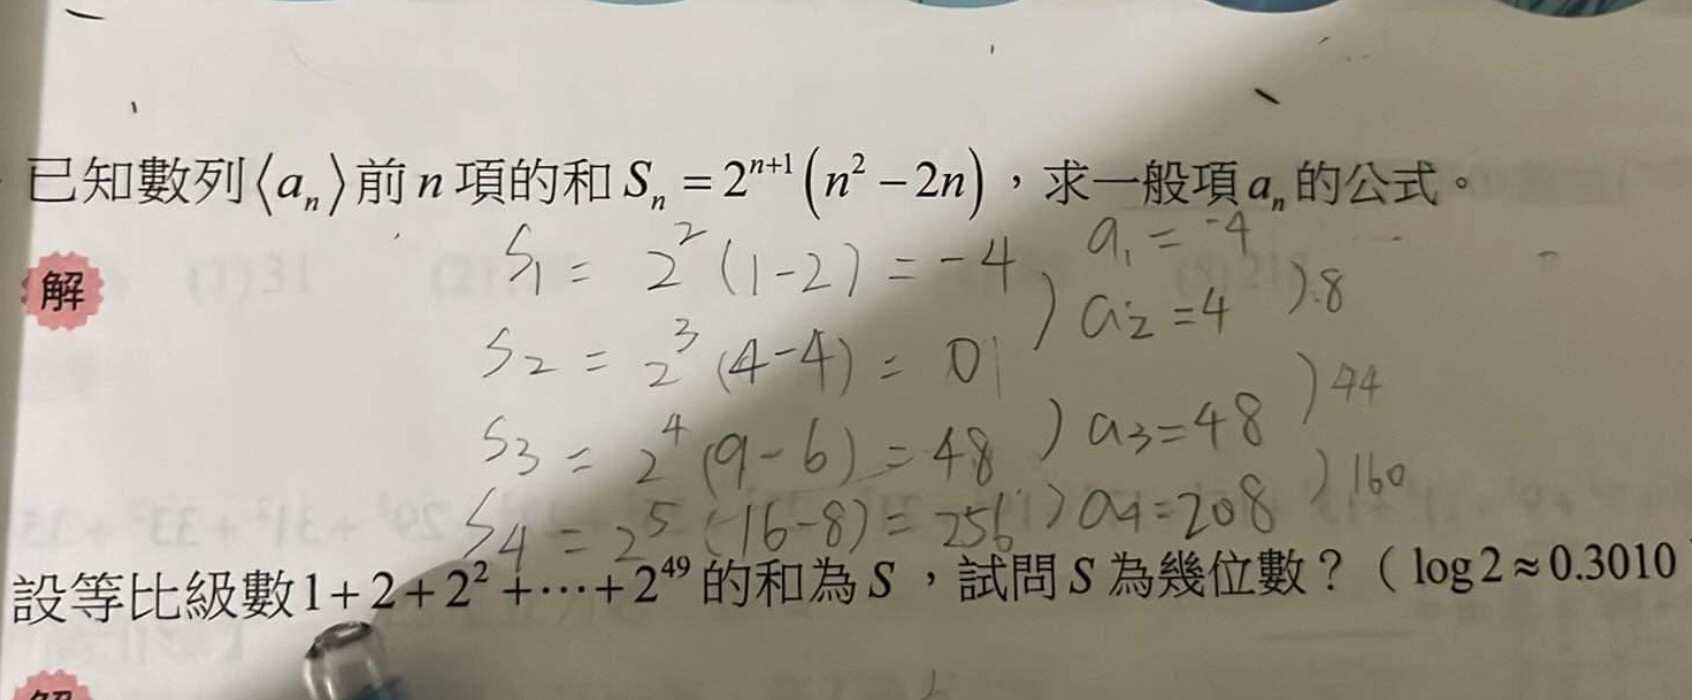 已知數列⟨aₙ⟩前 n 項的和 Sₙ = 2ⁿ⁺¹(n² − 2n),求一般項 aₙ 的公式。
解
S₁ = 2² (1-2) = -4 ) a₁ = -4
S₂ = 2³ (4-4) = 0 ) a₂ = 4 ) 8
S₃ = 2⁴ (9-6) = 48 ) a₃ = 48 ) 44
S₄ = 2⁵ (16-8) = 256 ) a₄ = 208 ) 160
設等比級數1 + 2 + 2² + ⋯ + 2⁴⁹ 的和為 S ,試問 S 為幾位數?( log 2 ≈ 0.3010
解